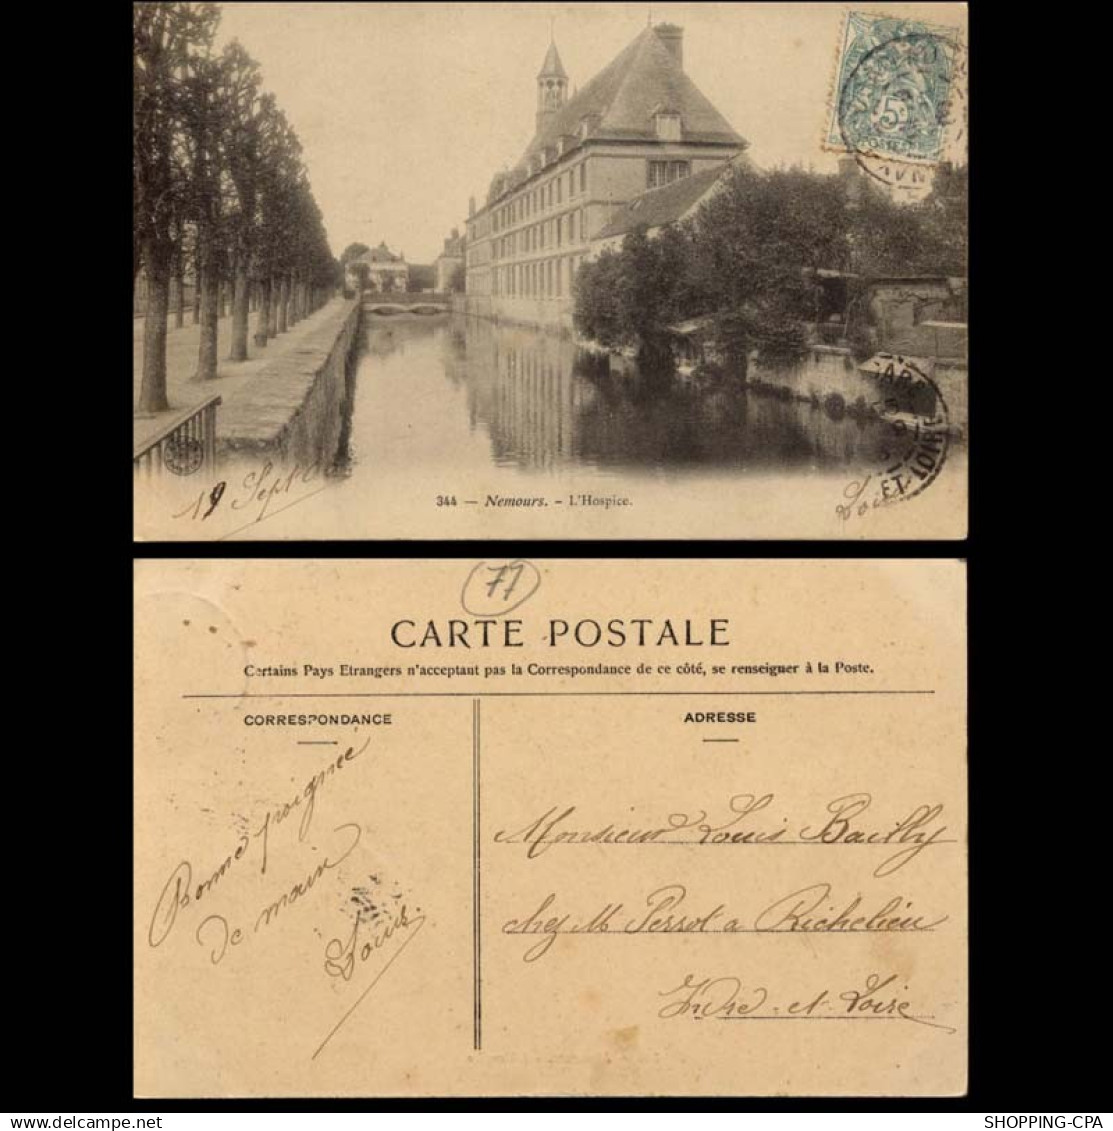 5
POSTES
GARE
ET-LOIRE
19 Sept
344 — Nemours. – L'Hospice.
77
CARTE POSTALE
Certains Pays Etrangers n'acceptant pas la Correspondance de ce côté, se renseigner à la Poste.
CORRESPONDANCE
Bonne poignée
de main
Louis.
ADRESSE
Monsieur Louis Bailly
chez M. Perrot a Richelieu
Indre-et-Loire
SHOPPING-CPA